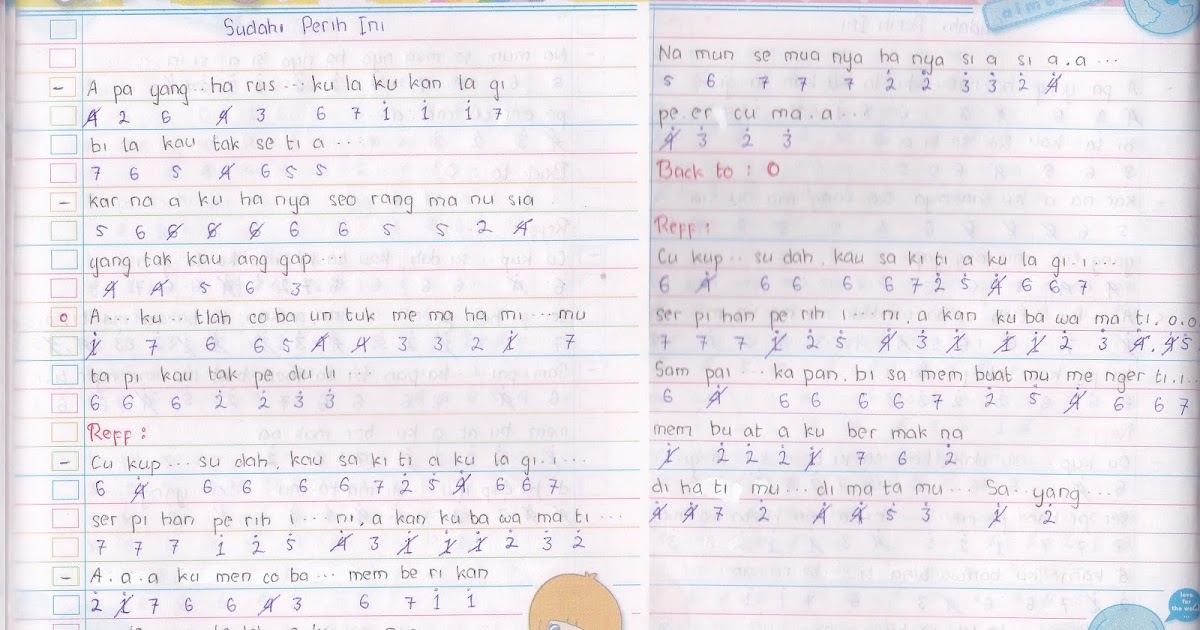 Sudahi Perih Ini
- A pa yang.. ha rus ... ku la ku kan la gi
4̸ 2 6 4̸ 3 6 7 1̇ 1̇ 1̇ 7
bi la kau tak se ti a ....
7 6 5 4̸ 6 5 5
- kar na a ku ha nya seo rang ma nu sia
5 6 8̸ 8̸ 8̸ 6 6 5 5 2 4̸
yang tak kau ang gap ....
4̸ 4̸ 5 6 3
o A ... ku ... tlah co ba un tuk me ma ha mi ... mu
1̸̇ 7 6 6 5 4̸ 4̸ 3 3 2 1̸̇ 7
ta pi kau tak pe du li ...
6 6 6 2̇ 2̇ 3̇ 3̇
Reff :
- Cu kup ... su dah, kau sa ki ti a ku la gi . i ...
6 4̸̇ 6 6 6 6 7 2̇ 5̇ 4̸̇ 6 6 7
ser pi han pe rih i ... ni, a kan ku ba wa ma ti ...
7 7 7 1̇ 2̇ 5̇ 4̸̇ 3 1̸̇ 1̸̇ 1̸̇ 2̇ 3̇ 2̇
- A . a . a ku men co ba ... mem be ri kan
2̇ 1̸̇ 7 6 6 4̸ 3 6 7 1̇ 1̇
Na mun se mua nya ha nya si a si a . a ...
5 6 7 7 7 2̇ 2̇ 3̇ 3̇ 2̇ 4̸̇
pe . er cu ma . a ...
4̸̇ 3̇ 2̇ 3̇
Back to : O
Reff :
Cu kup .. su dah, kau sa ki ti a ku la gi . i ...
6 4̸̇ 6 6 6 6 7 2̇ 5̇ 4̸̇ 6 6 7
ser pi han pe rih i ... ni, a kan ku ba wa ma ti . o . o
7 7 7 1̸̇ 2̇ 5̇ 4̸̇ 3̇ 1̸̇ 1̸̇ 1̸̇ 2̇ 3̇ 4̸̇ . 4̸̇ 5̇
Sam pai ... ka pan, bi sa mem buat mu me nger ti . i ..
6 4̸̇ 6 6 6 6 7 2̇ 5̇ 4̸̇ 6 6 7
mem bu at a ku ber mak na
1̸̇ 2̇ 2̇ 2̇ 1̸̇ 7 6 2̇
di ha ti mu ... di ma ta mu ... Sa .. yang ...
4̸̇ 4̸̇ 7 2̇ 4̸̇ 4̸̇ 5̇ 3̇ 1̸̇ 2̇
love for the